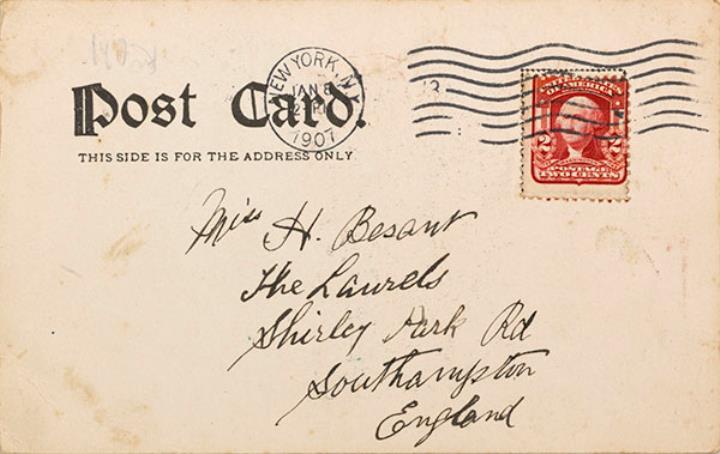 Post Card.
THIS SIDE IS FOR THE ADDRESS ONLY
NEW YORK, N.Y.
JAN
1907
3
UNITED STATES
OF AMERICA
2 2
POSTAGE
TWO CENTS
Miss H. Besant
The Laurels
Shirley Park Rd
Southampton
England